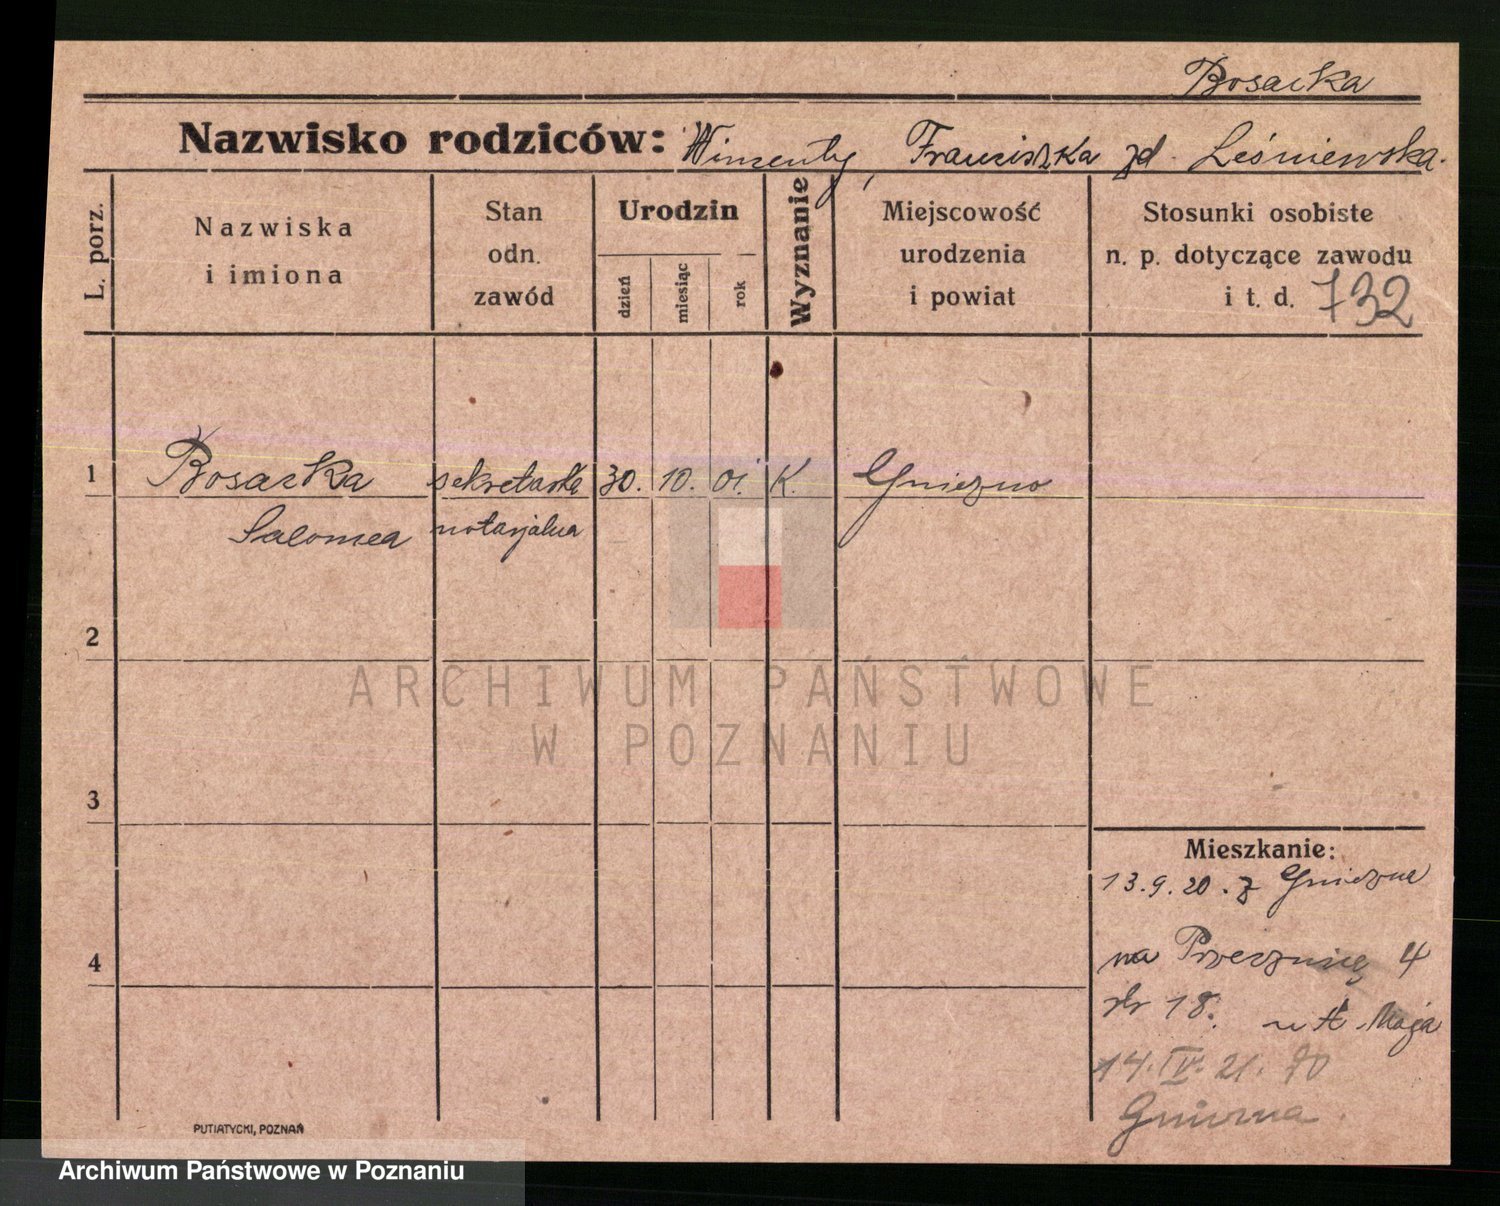 Bosacka
Nazwisko rodziców: Wincenty, Franciszka zd. Leśniewska.
L. porz.
Nazwiska
i imiona
Stan
odn.
zawód
Urodzin
dzień
miesiąc
rok
Wyznanie
Miejscowość
urodzenia
i powiat
Stosunki osobiste
n. p. dotyczące zawodu
i t. d. 732
1 Bosacka sekretarka 30. 10. 01. K. Gniezno
Salomea notarjalna
2
3
4
Mieszkanie:
13.9.20. z Gniezna
na Przecznicę 4
18. u Maja
14. IV. 21. do
Gniezna.
PUTIATYCKI, POZNAŃ
ARCHIWUM PAŃSTWOWE
W POZNANIU
Archiwum Państwowe w Poznaniu